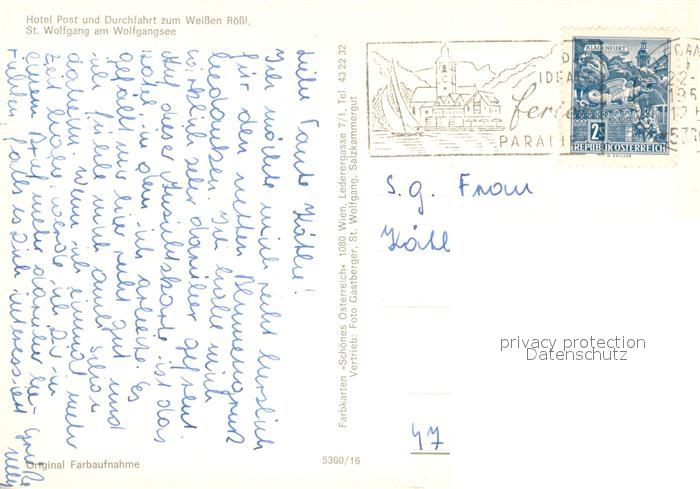 Hotel Post und Durchfahrt zum Weißen Rößl,
St. Wolfgang am Wolfgangsee
Liebe Tante Käthe!
Ich möchte mich recht herzlich
für den netten Blumengruß
bedanken. Ich habe mich
wirklich sehr darüber gefreut.
Auf der Ansichtskarte ist das
Hotel in dem ich arbeite. Es
gefällt mir hier recht gut und
ich fühle mich schon
daheim. Wenn ich einmal mehr
Zeit habe, werde ich Dir in
einem Brief mehr darüber be-
richten, falls es Dich interessiert
Grüße
Original Farbaufnahme
5360/16
Farbkarten »Schönes Österreich« 1080 Wien, Lederergasse 7/1, Tel. 43 22 32
Vertrieb: Foto Gastberger, St. Wolfgang, Salzkammergut
IDEA
ferie
PARALL
KLAGENFURT
2S
REPUBLIK ÖSTERREICH
S. g. Frau
Käth
47
privacy protection
Datenschutz